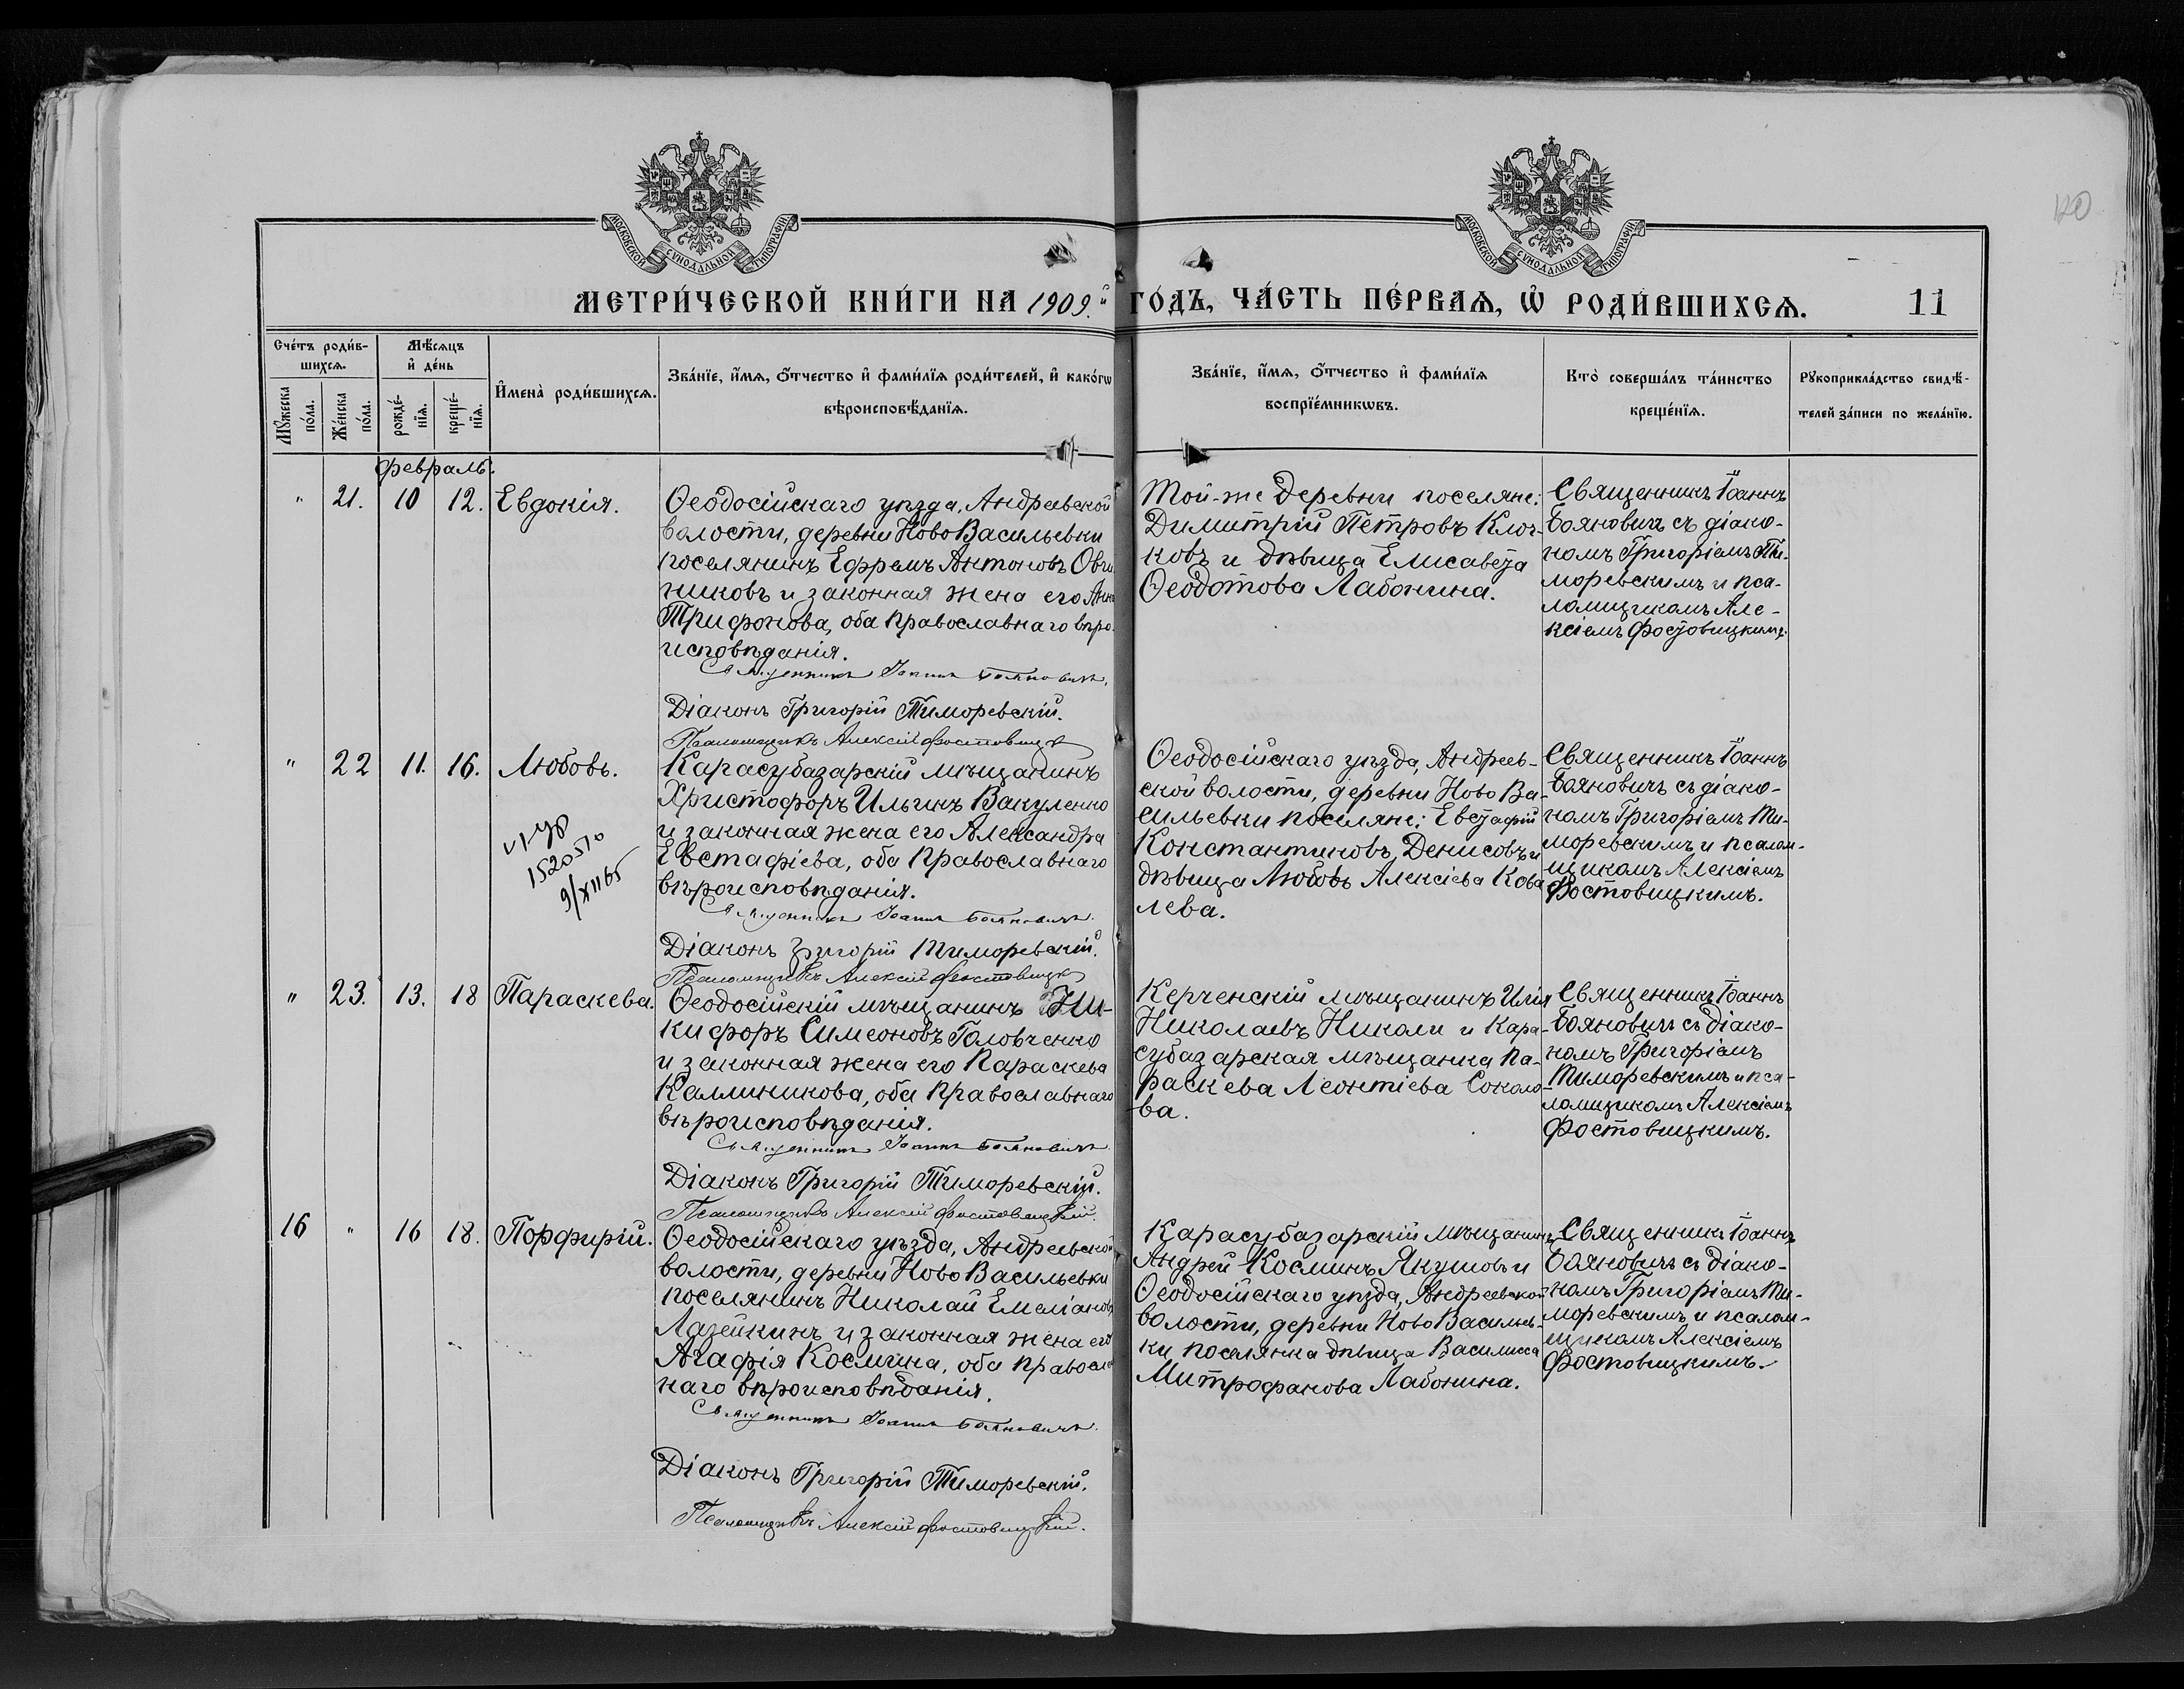 МОСКОВСКОЙ СУНОДАЛЬНОЙ ТИПОГРАФІИ
МОСКОВСКОЙ СУНОДАЛЬНОЙ ТИПОГРАФІИ
120
МЕТРИ́ЧЕСКОЙ КНИ́ГИ НА 1909.й ГО́ДЪ, ЧА́СТЬ ПЕ́РВАѦ, Ѡ҆ РОДИ́ВШИХСѦ. 11
Сче́тъ роди́в-
шихсѧ.
Мꙋ́жеска по́ла.
Же́нска по́ла.
Мѣ́сѧцъ
и҆ де́нь
рожде́-нїѧ.
креще́-нїѧ.
И҆мена̀ роди́вшихсѧ.
Зва́нїе, и҆́мѧ, ѻ҆́тчество и҆ фами́лїѧ роди́телей, и҆ како́гѡ
вѣроисповѣ́данїѧ.
Зва́нїе, и҆́мѧ, ѻ҆́тчество и҆ фами́лїѧ
воспрїе́мникѡвъ.
Кто̀ соверша́лъ та́инство
креще́нїѧ.
Рꙋкоприкла́дство свидѣ́-
телей за́писи по жела́нїю.
Февраль.
" 21. 10 12. Евдокія.
Ѳеодосійскаго уѣзда, Андреевской
волости, деревни НовоВасильевки
поселянинъ Ефремъ Антоновъ Овчи
никовъ и законная жена его Анна
Трифонова, оба православнаго вѣро-
исповѣданія.
Священникъ Іоаннъ Бояновичъ.
Діаконъ Григорій Тиморевскій.
Псаломщикъ Алексій Фостовицкій
Той-же деревни поселяне:
Димитрій Петровъ Клоч-
ковъ и дѣвица Елисавета
Ѳеодотова Лабонина.
Священникъ Іоаннъ
Бояновичъ съ діако-
номъ Григоріемъ Ти-
моревскимъ и пса-
ломщикомъ Але-
ксіемъ Фостовицкимъ.
" 22 11. 16. Любовь.
1520510
9/XII 65
Карасубазарскій мѣщанинъ
Христофоръ Ильинъ Вакуленко
и законная жена его Александра
Евстафіева, оба православнаго
вѣроисповѣданія.
Священникъ Іоаннъ Бояновичъ.
Діаконъ Григорій Тиморевскій.
Псаломщикъ Алексій Фостовицкій
Ѳеодосійскаго уѣзда, Андреев-
ской волости, деревни Ново Ва-
сильевки поселяне: Евстафій
Константиновъ Денисовъ и
дѣвица Любовь Алексіева Кова
лева.
Священникъ Іоаннъ
Бояновичъ съ діако-
номъ Григоріемъ Ти-
моревскимъ и псалом-
щикомъ Алексіемъ
Фостовицкимъ.
" 23. 13. 18 Параскева.
Ѳеодосійскій мѣщанинъ Ни-
кифоръ Симеоновъ Головченко
и законная жена его Параскева
Каллиникова, оба православнаго
вѣроисповѣданія.
Священникъ Іоаннъ Бояновичъ
Діаконъ Григорій Тиморевскій.
Псаломщикъ Алексій Фостовицкій.
Керченскій мѣщанинъ Илія
Николаевъ Николи и Кара-
субазарская мѣщанка Па-
раскева Леонтіева Соколо-
ва.
Священникъ Іоаннъ
Бояновичъ съ діако-
номъ Григоріемъ
Тиморевскимъ и пса-
ломщикомъ Алексіемъ
Фостовицкимъ.
16 " 16 18. Порфирій.
Ѳеодосійскаго уѣзда, Андреевской
волости, деревни НовоВасильевки
поселянинъ Николай Емеліановъ
Лазейкинъ и законная жена его
Агафія Космина, оба православ
наго вѣроисповѣданія.
Священникъ Іоаннъ Бояновичъ.
Діаконъ Григорій Тиморевскій.
Псаломщикъ Алексій Фостовицкій.
Карасубазарскій мѣщанинъ
Андрей Косминъ Якушовъ и
Ѳеодосійскаго уѣзда, Андреевской
волости, деревни НовоВасильев-
ки поселянка дѣвица Василисса
Митрофанова Лабонина.
Священникъ Іоаннъ
Бояновичъ съ діако-
номъ Григоріемъ Ти-
моревскимъ и псалом-
щикомъ Алексіемъ
Фостовицкимъ.